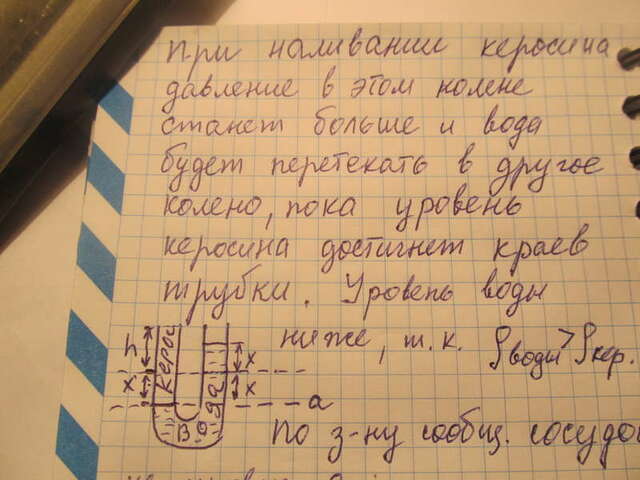 при наливании керосина
давление в этом колене
станет больше и вода
будет перетекать в другое
колено, пока уровень
керосина достигнет краев
трубки. Уровень воды
ниже, т.к. ρводы > ρкер.
h
x
керос
вода
x
x
a
По з-ну сообщ. сосудо